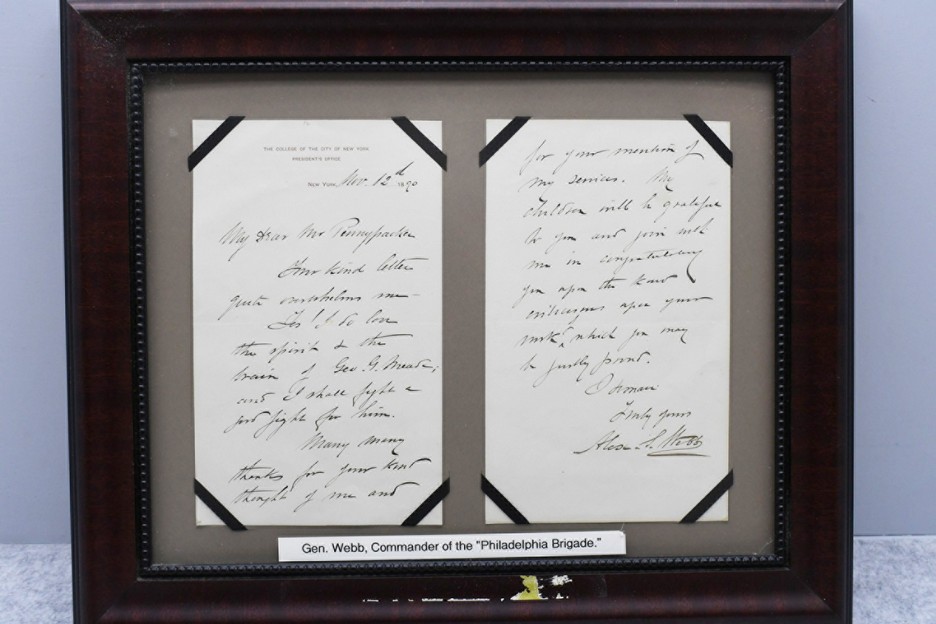 THE COLLEGE OF THE CITY OF NEW YORK
PRESIDENT'S OFFICE
NEW YORK, Nov. 12th 1890
My dear Mr Pennypacker
Your kind letter
quite overwhelms me—
Yes! I do love
the spirit & the
brain of Geo. G. Meade;
and I shall fight a
good fight for him.
Many many
thanks for your kind
thought of me and
for your mention of
my services. My
children will be grateful
to you and join with
me in congratulating
you upon the kind
criticisms upon your
work, which you may
be justly proud.
I remain
Truly yours
Alex S. Webb
Gen. Webb, Commander of the "Philadelphia Brigade."